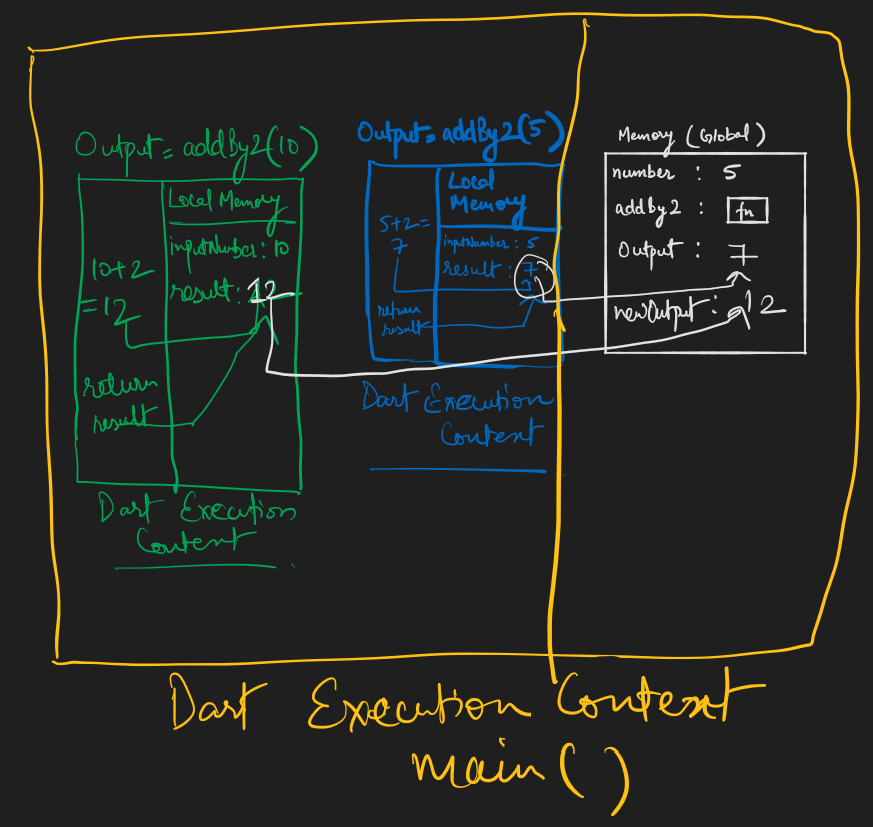 Output = addBy2(10)
Local Memory
inputNumber : 10
10+2
= 12
result : 12
return
result
Dart Execution
Content
Output = addBy2(5)
Local
Memory
5+2=
7
inputNumber : 5
result : 7
return
result
Dart Execution
Content
Memory (Global)
number : 5
addBy2 : fn
Output : 7
newOutput : 12
Dart Execution Context
main()